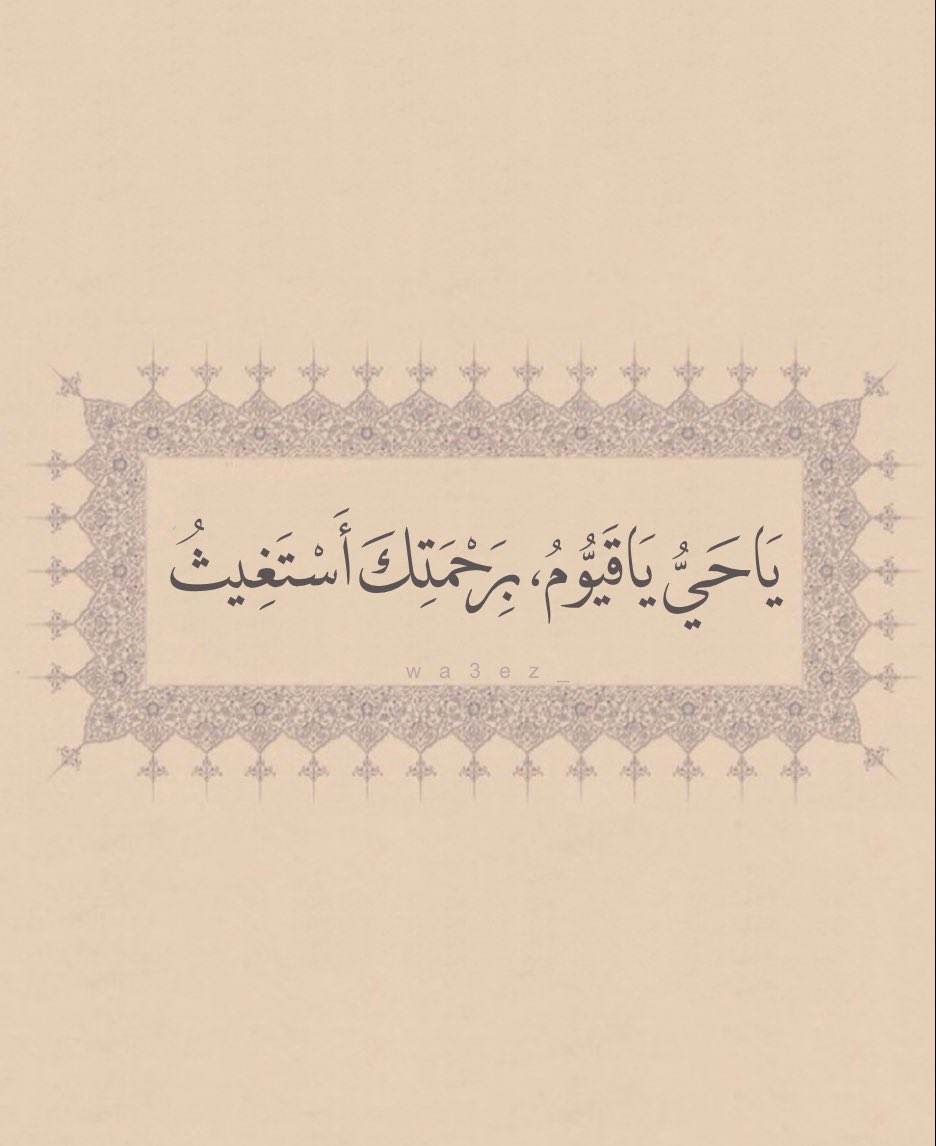 يَا حَيُّ يَا قَيُّومُ، بِرَحْمَتِكَ أَسْتَغِيثُ
wa3ez_